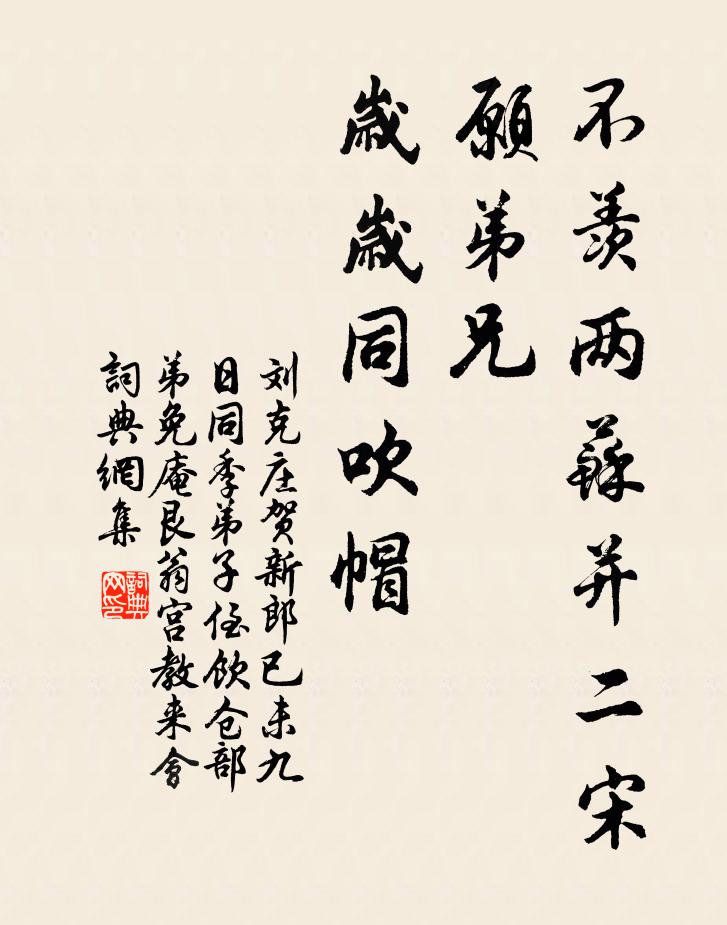 不羡两蘇并二宋
願弟兄
歲歲同吹帽
刘克庄贺新郎已未九
日同季弟子侄飲仓部
弟免庵艮翁宫教来會
詞典網集
詞典
网印